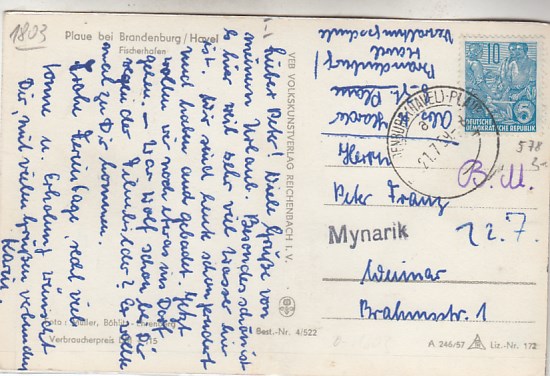 1803
Plaue bei Brandenburg/Havel
Fischerhafen
Lieber Peter! Viele Grüße von
meinem Urlaub. Besonders schön ist
es hier, weil sehr viel Wasser hier
ist. Wir sind heute schon gerudert
und haben auch gebadet. Jetzt
wollen wir noch etwas ins Dorf
gehen. – War Wolf schon bei Dir
wegen der Filmbilder? Er wollte
mal zu Dir kommen.
Frohe Ferientage, recht viel
Sonne u. Erholung wünscht
Dir, mit vielen Grüßen verbunden
Karin.
VEB VOLKSKUNSTVERLAG REICHENBACH I. V.
Foto: Müller, Böhlitz-Ehrenberg
Verbraucherpreis DM 0,15
Best.-Nr. 4/522
Aus
Plaue
Brandenburg/
Havel
10
5
DEUTSCHE
DEMOKRATISCHE REPUBLIK
BRANDENBURG (HAVEL)-PLAUE
21.7.
578
B M.
Herrn
Peter Franz
Mynarik
22.7.
Weimar
Brahmsstr. 1
A 246/57 Liz.-Nr. 172